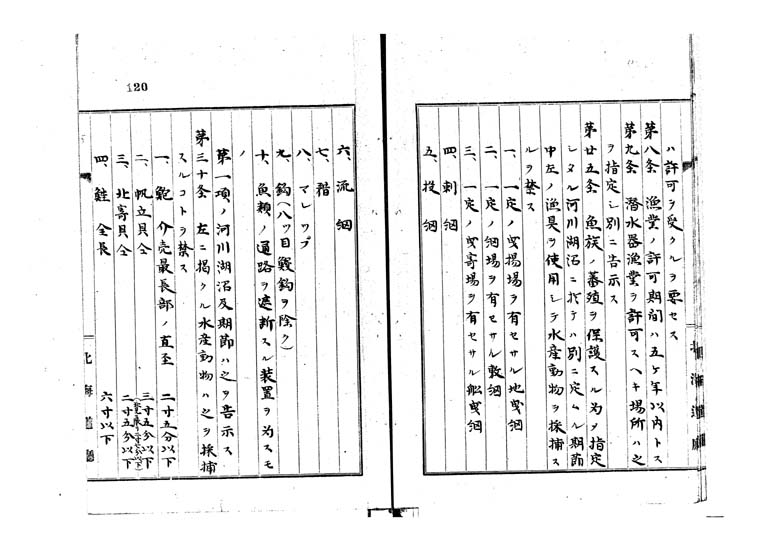 ハ許可ヲ受クルヲ要セス
第八条 漁業ノ許可期間ハ五ケ年以内トス
第九条 潜水器漁業ヲ許可スヘキ場所ハ之
ヲ指定シ別ニ告示ス
第廿五条 魚族ノ蕃殖ヲ保護スル為メ指定
シタル河川湖沼ニ於テハ別ニ定ムル期節
中左ノ漁具ヲ使用シテ水産動物ヲ採捕ス
ルヲ禁ス
一、一定ノ曳揚場ヲ有セサル地曳網
二、一定ノ網場ヲ有セサル敷網
三、一定ノ曳寄場ヲ有セサル船曳網
四、刺網
五、投網
120
六、流網
七、
八、マレツプ
九、鈎(八ツ目鰻鈎ヲ除ク)
十、魚類ノ通路ヲ遮断スル装置ヲ為スモ
ノ
第一項ノ河川湖沼及期節ハ之ヲ告示ス
第三十条 左ニ掲クル水産動物ハ之ヲ採捕
スルコトヲ禁ス
一、鮑 介売最長部ノ直至 二寸五分以下
二、帆立貝仝 三寸五分以下
三、北寄貝仝 二寸五分以下
四、鮭 全長 六寸以下
北海道廳